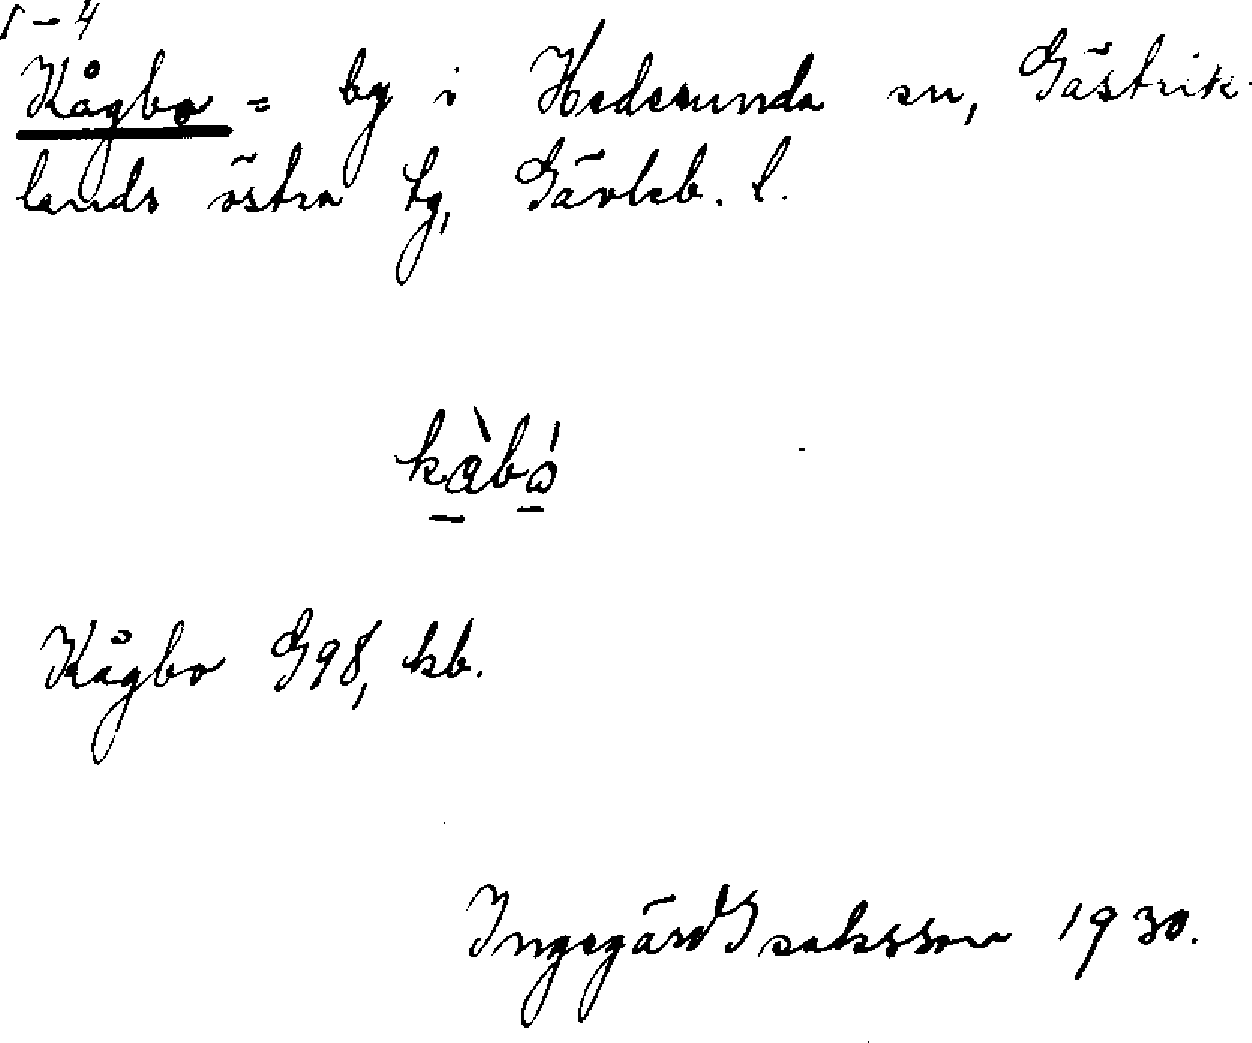 Kågbo = by i Hedesunda sn, Gästrik-
lands östra tg, Gävleb. l.
kàbó
Kågbo G98, kb.
Ingegärd Isaksson 1930.